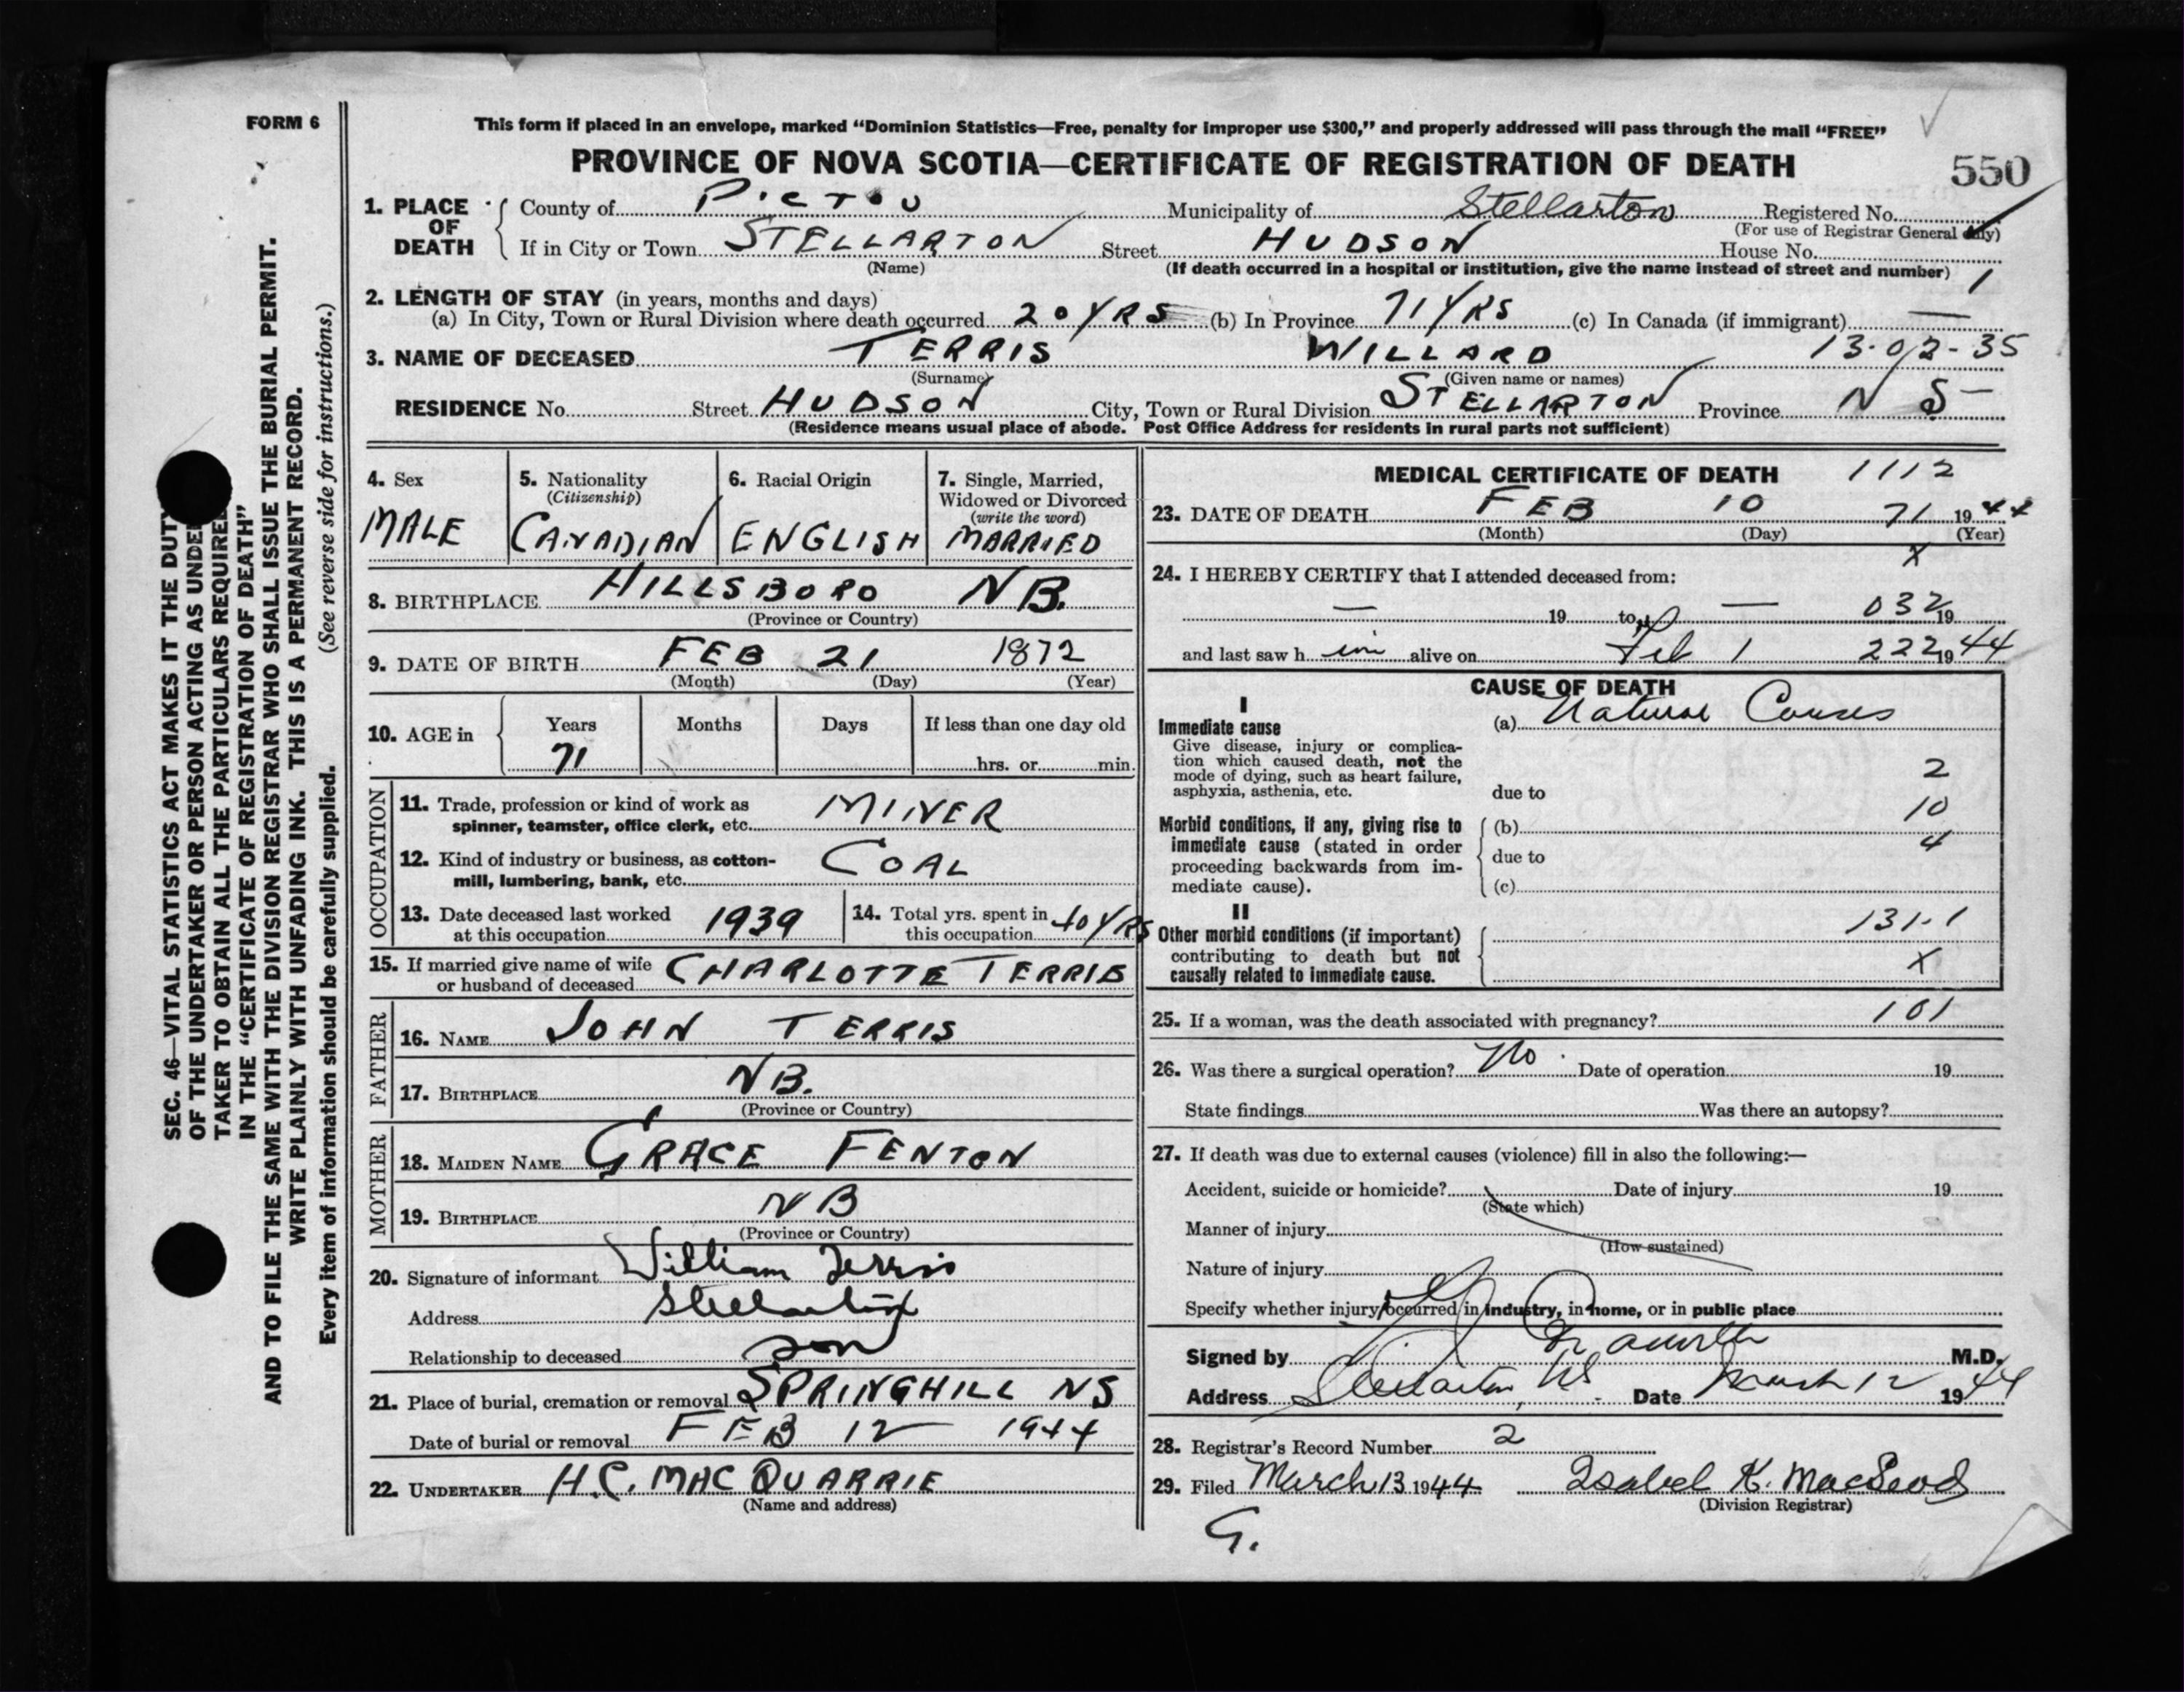 FORM 6
This form if placed in an envelope, marked “Dominion Statistics—Free, penalty for improper use $300,” and properly addressed will pass through the mail “FREE”
PROVINCE OF NOVA SCOTIA—CERTIFICATE OF REGISTRATION OF DEATH
550
1. PLACE OF DEATH County of PICTOU Municipality of Stellarton Registered No.
(For use of Registrar General only)
If in City or Town STELLARTON Street HUDSON House No.
(Name) (If death occurred in a hospital or institution, give the name instead of street and number) 1
2. LENGTH OF STAY (in years, months and days)
(a) In City, Town or Rural Division where death occurred 20 YRS (b) In Province 71 YRS (c) In Canada (if immigrant) —
3. NAME OF DECEASED TERRIS WILLARD 13-02-35
(Surname) (Given name or names)
RESIDENCE No. Street HUDSON City, Town or Rural Division STELLARTON Province N S
(Residence means usual place of abode. Post Office Address for residents in rural parts not sufficient)
4. Sex
MALE
5. Nationality
(Citizenship)
CANADIAN
6. Racial Origin
ENGLISH
7. Single, Married,
Widowed or Divorced
(write the word)
MARRIED
8. BIRTHPLACE HILLSBORO NB.
(Province or Country)
9. DATE OF BIRTH FEB 21 1872
(Month) (Day) (Year)
10. AGE in Years Months Days If less than one day old
71 hrs. or min.
OCCUPATION
11. Trade, profession or kind of work as
spinner, teamster, office clerk, etc. MINER
12. Kind of industry or business, as cotton-
mill, lumbering, bank, etc. COAL
13. Date deceased last worked
at this occupation 1939
14. Total yrs. spent in
this occupation 40 YRS
15. If married give name of wife
or husband of deceased CHARLOTTE TERRIS
FATHER
16. NAME JOHN TERRIS
17. BIRTHPLACE NB.
(Province or Country)
MOTHER
18. MAIDEN NAME GRACE FENTON
19. BIRTHPLACE NB
(Province or Country)
20. Signature of informant William Terris
Address Stellarton
Relationship to deceased son
21. Place of burial, cremation or removal SPRINGHILL NS
Date of burial or removal FEB 12 1944
22. UNDERTAKER H.C. MACQUARRIE
(Name and address)
MEDICAL CERTIFICATE OF DEATH 1112
23. DATE OF DEATH FEB 10 71 1944
(Month) (Day) (Year)
X
24. I HEREBY CERTIFY that I attended deceased from:
— 19 to — 032 19
and last saw h im alive on Feb 1 222 1944
CAUSE OF DEATH
I
Immediate cause
Give disease, injury or complica-
tion which caused death, not the
mode of dying, such as heart failure,
asphyxia, asthenia, etc.
(a) Natural Causes
2
due to
10
Morbid conditions, if any, giving rise to
immediate cause (stated in order
proceeding backwards from im-
mediate cause).
(b)
4
due to
(c)
II
131-1
Other morbid conditions (if important)
contributing to death but not
causally related to immediate cause.
X
25. If a woman, was the death associated with pregnancy? 101
26. Was there a surgical operation? No. Date of operation 19
State findings Was there an autopsy?
27. If death was due to external causes (violence) fill in also the following:—
Accident, suicide or homicide? Date of injury 19
(State which)
Manner of injury
(How sustained)
Nature of injury
Specify whether injury occurred in industry, in home, or in public place
Signed by M.D.
Address Stellarton, NS. Date March 12 1944
28. Registrar's Record Number 2
29. Filed March 13 1944 Isabel K. MacLeod
(Division Registrar)
G.
SEC. 46—VITAL STATISTICS ACT MAKES IT THE DUTY
OF THE UNDERTAKER OR PERSON ACTING AS UNDER
TAKER TO OBTAIN ALL THE PARTICULARS REQUIRED
IN THE “CERTIFICATE OF REGISTRATION OF DEATH”
AND TO FILE THE SAME WITH THE DIVISION REGISTRAR WHO SHALL ISSUE THE BURIAL PERMIT.
WRITE PLAINLY WITH UNFADING INK. THIS IS A PERMANENT RECORD.
Every item of information should be carefully supplied. (See reverse side for instructions.)